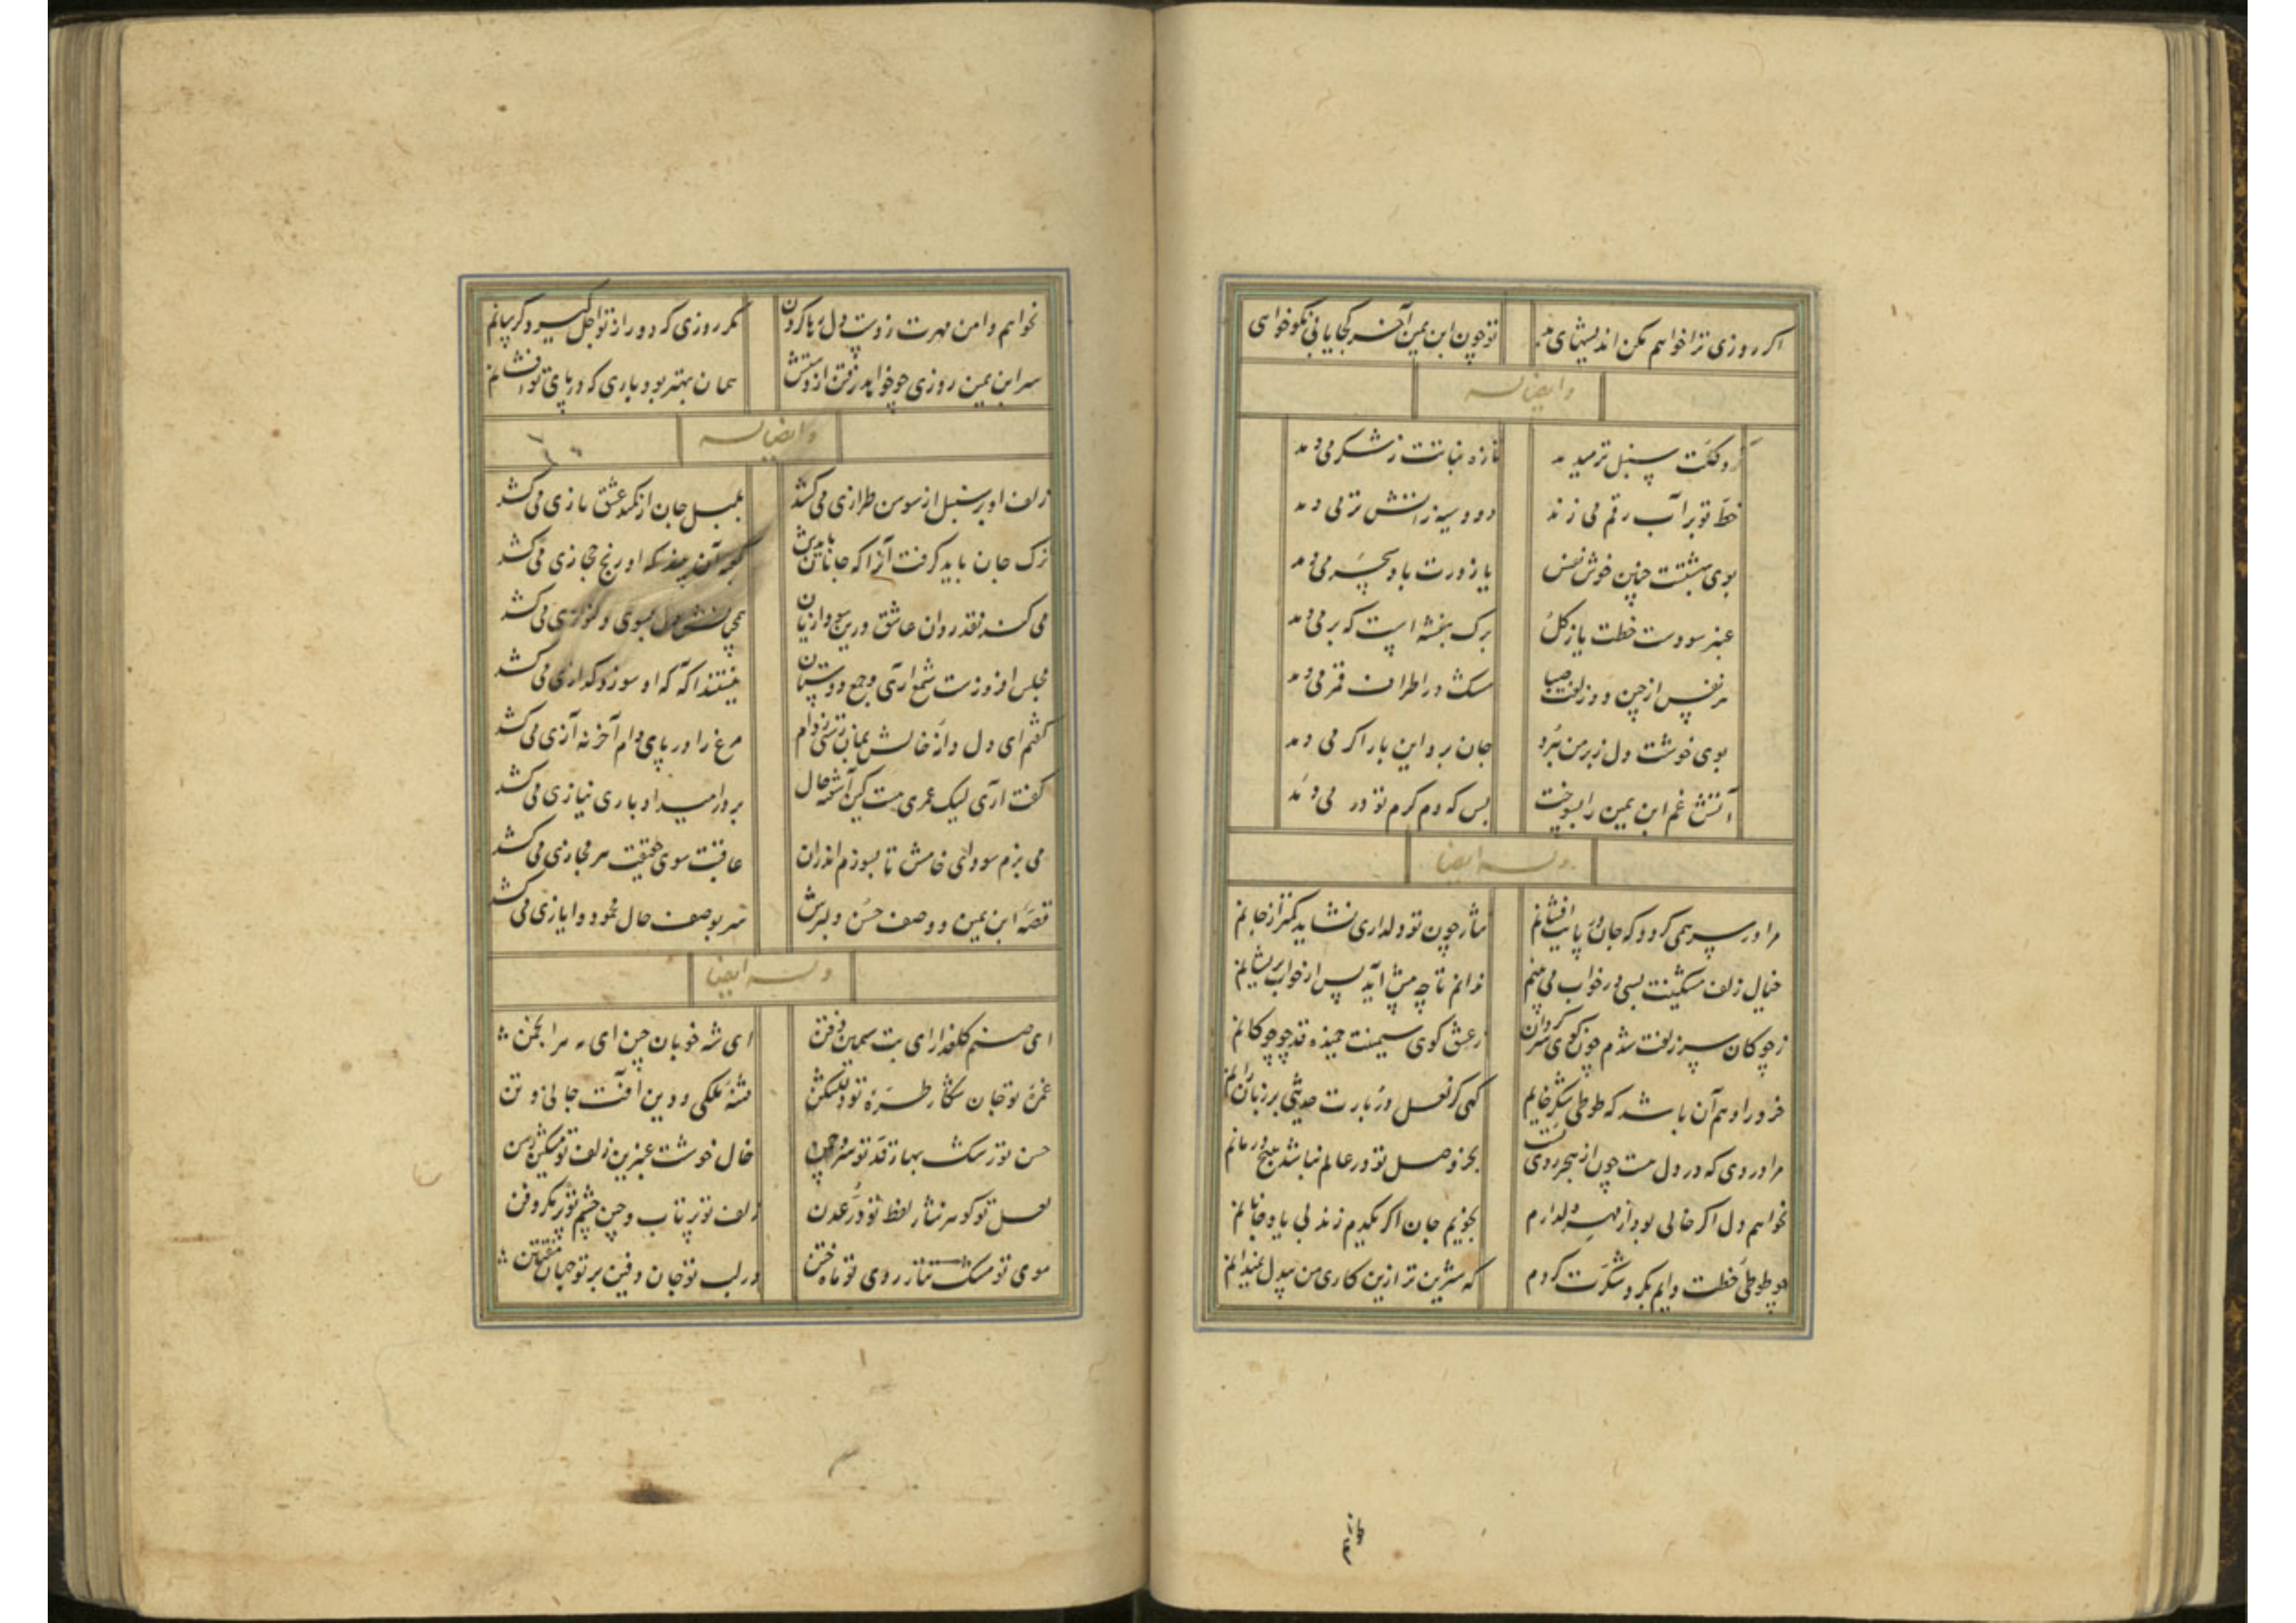 اگر روزی ترا خواهم مکن اندیشهای بد تو چون ابن یمین آخر کجا یابی نکوخواهی
وایضا له
گرد گلت سنبل تر میدمد تازه نباتت ز شکر می دمد
خط تو بر آب رقم می زند دود سیه ز آتش تر می دمد
بوی بهشتست چنین خوش نفس یا ز درت باد سحر می دمد
عنبر سوده‌ست خطت یا ز گل برگ بنفشه است که بر می دمد
هر نفس از چین دو زلفت صبا مشک در اطراف قمر می دمد
بوی خوشت دل ز بر من ببرد جان برد این بار اگر می دمد
آتش غم ابن یمین را بسوخت بس که دم گرم تو در می دمد
وله ایضا
مرا در سر همی گردد که جان در پایت افشانم نثار چون تو دلداری نشاید کمتر از جانم
خیال زلف مشکینت بسی در خواب می بینم ندانم تا چه پیش آید پس از خواب پریشانم
ز چوگان سر زلفت شدم چون گوی سرگردان ز عشق گوی سیمینت خمیده قد چو چوگانم
خرد را وهم آن باشد که طوطی شکر خایم گهی کز لعل دربارت حدیثی بر زبان رانم
مرا دردی که در دل هست چون از هجر روی تست بجز وصل تو در عالم نباشد هیچ درمانم
نخواهم دل اگر خالی بود از مهر دلدارم نجویم جان اگر یکدم زند بی یاد جانانم
چو طوطی خطت دایم بگرد شکرت گردم که شیرین تر ازین کاری من بیدل نمیدانم
نخواهم دامن مهرت ز دست دل رها کردن مگر روزی که دور از تو اجل گیرد گریبانم
سر ابن یمین روزی چو خواهد رفتن از دستش همان بهتر بود باری که در پای تو افشانم
وایضا له
زلف او بر سنبل از سوسن طرازی می کشد بلبل جان از گلش عشق بازی می کشد
ترک جان باید گرفت آنرا که جانان بایدش کو رنج حجازی می کشد
می کند نقد روان عاشق درین سودا زیان همچنانش دل بسوی دلنوازی می کشد
مجلس افروزست شمع آری و جمع دوستان نیستند آگه که او سوز و گدازی می کشد
گفتم ای دل دانه خالش بمان ترسی ز دام مرغ را در پای دام آخر نه آزی می کشد
گفت آری لیک عمری هست کین آشفته حال بر در امید او باری نیازی می کشد
می پزم سودای خامش تا بسوزم اندران عاقبت سوی حقیقت هر مجازی می کشد
قصه ابن یمین و وصف حسن دلبرش سر بوصف حال محمود و ایازی می کشد
وله ایضا
ای صنم گلعذار ای بت سیمین ذقن ای شه خوبان چین ای مه هر انجمن
غمزه تو جان شکار طره تو دلشکن فتنه ملکی و دین آفت جانی و تن
حسن تو رشک بهار قد تو سرو چمن خال خوشت عنبرین زلف تو مشکین رسن
لعل تو گوهر نثار لفظ تو در عدن زلف تو پر تاب و چین چشم تو پر مکر و فن
موی تو مشک تتار روی تو ماه ختن در لب تو جان دفین بر تو جهان مفتتن